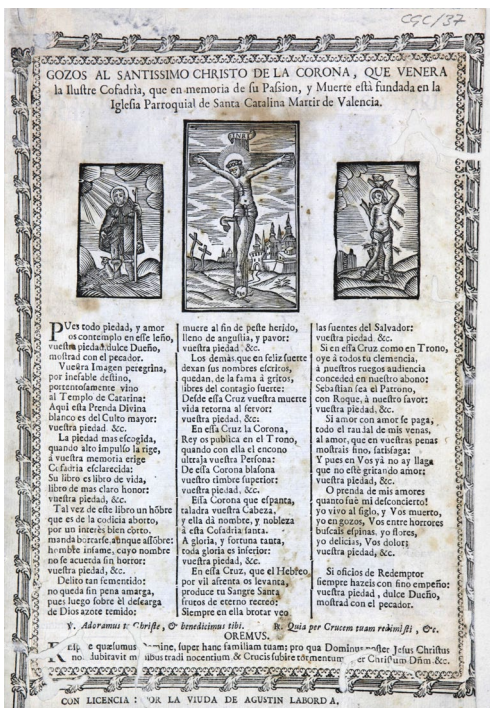 CGC/37
GOZOS AL SANTISSIMO CHRISTO DE LA CORONA, QUE VENERA
la Ilustre Cofadria, que en memoria de su Passion, y Muerte està fundada en la
Iglesia Parroquial de Santa Catalina Martir de Valencia.
INRI
PUes todo piedad, y amor
os contemplo en esse leño,
vuestra piedad dulce Dueño,
mostrad con el pecador.
Vuestra Imagen peregrina,
por inefable destino,
portentosamente vino
al Templo de Catarina:
Aqui esta Prenda Divina
blanco es del Culto mayor:
vuestra piedad. &c.
La piedad mas escogida,
quando alto impulso la rige,
à vuestra memoria erige
Cofadria esclarecida:
Su libro es libro de vida,
libro de mas claro honor:
vuestra piedad, &c.
Tal vez de este libro un hõbre
que es de la codicia aborto,
por un interès bien corto.
manda borrarse, aunque assõbre:
hombre infame, cuyo nombre
no se acuerda sin horror:
vuestra piedad, &c.
Delito tan fementido:
no queda sin pena amarga,
pues luego sobre èl descarga
de Dios azote temido:
muere al fin de peste herido,
lleno de angustia, y pavor:
vuestra piedad. &c.
Los demàs, que en feliz suerte
dexan sus nombres escritos,
quedan, de la fama à gritos,
libres del contagio fuerte:
Desde essa Cruz vuestra muerte
vida retorna al fervor:
vuestra piedad, &c.
En essa Cruz la Corona,
Rey os publica en el Trono,
quando con ella el encono
ultraja vuestra Persona:
De essa Corona blasona
vuestro timbre superior:
vuestra piedad, &c.
Essa Corona que espanta,
taladra vuestra Cabeza,
y ella dà nombre, y nobleza
à esta Cofadria santa.
A gloria, y fortuna tanta,
toda gloria es inferior:
vuestra piedad, &c.
En essa Cruz, que el Hebreo,
por vil afrenta os levanta,
produce tu Sangre Santa
frutos de eterno recreo:
Siempre en ella brotar veo
las fuentes del Salvador:
vuestra piedad: &c.
Si en essa Cruz como en Trono,
oye à todos tu clemencia,
à nuestros ruegos audiencia
conceded en nuestro abono:
Sebastian sea el Patrono,
con Roque, à nuestro favor:
vuestra piedad, &c.
Si amor con amor se paga,
todo el raudal de mis venas,
al amor, que en vuestras penas
mostrais fino, satisfaga:
Y pues en Vos yà no ay llaga
que no estè gritando amor;
vuestra piedad, &c.
O prenda de mis amores
quanto fue mi desconcierto!
yo vivo al siglo, y Vos muerto,
yo en gozos, Vos entre horrores
buscais espinas, yo flores,
yo delicias, Vos dolor:
vuestra piedad, &c.
Si oficios de Redemptor
siempre hazeis con fino empeño:
vuestra piedad, dulce Dueño,
mostrad con el pecador.
℣. Adoramus te Christe, & benedicimus tibi. ℟. Quia per Crucem tuam redimisti, &c.
OREMUS.
REspice quæsumus Domine, super hanc familiam tuam: pro qua Dominus noster Jesus Christus
non dubitavit manibus tradi nocentium, & Crucis subire tormentum per Christum Dñm. &c.
CON LICENCIA: POR LA VIUDA DE AGUSTIN LABORDA.